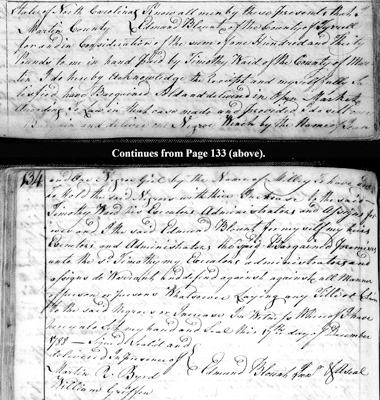 State of North Carolina } Know all men by these presents that I
Martin County } Edmund Blount of the County of Tyrrell
for and in Consideration of the sum of one Hundred and thirty
Pounds to me in hand paid by Timothy Ward of the County of Mar
tin I do hereby acknowledge the Receipt and myself fully
satisfied have Bargained Sold and delivered in open Market
According to Law in that case made and provided
Bargain and deliver one Negro Wench by the Name of
Continues from Page 133 (above).
134
and One Negro Girl by the Name of Milley to have and
to hold the said Negroes with their Increase to the said
Timothy Ward his Executors Administrators and Assigns for
ever and I the said Edmund Blount for my self my heirs
Executors and Administrators the said Bargained Premises
unto the Sd. Timothy my Executors administrators and
assigns do Warrant and defend against all Manner
of person or persons Whatsoever Laying any Title or Claim
to the said Negroes or Increase In Witness Whereof I have
hereunto Set my hand and Seal this 17th day of December
1788 Signed Sealed and
delivered In presence of
Martin R. Byrd
William Griffin
Edmund Blount Junr Seal